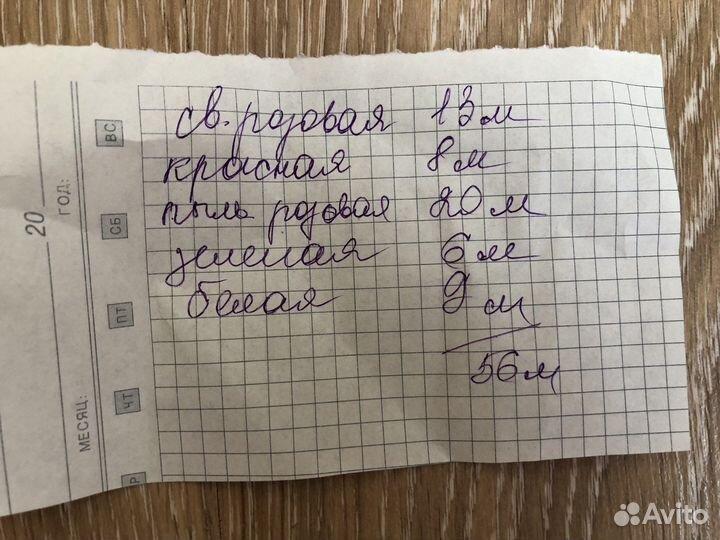 св. розовая 13 м
красная 8 м
пыль розовая 20 м
зеленая 6 м
белая 9 м
56 м
20
ГОД:
МЕСЯЦ:
ВС
СБ
ПТ
ЧТ
Avito